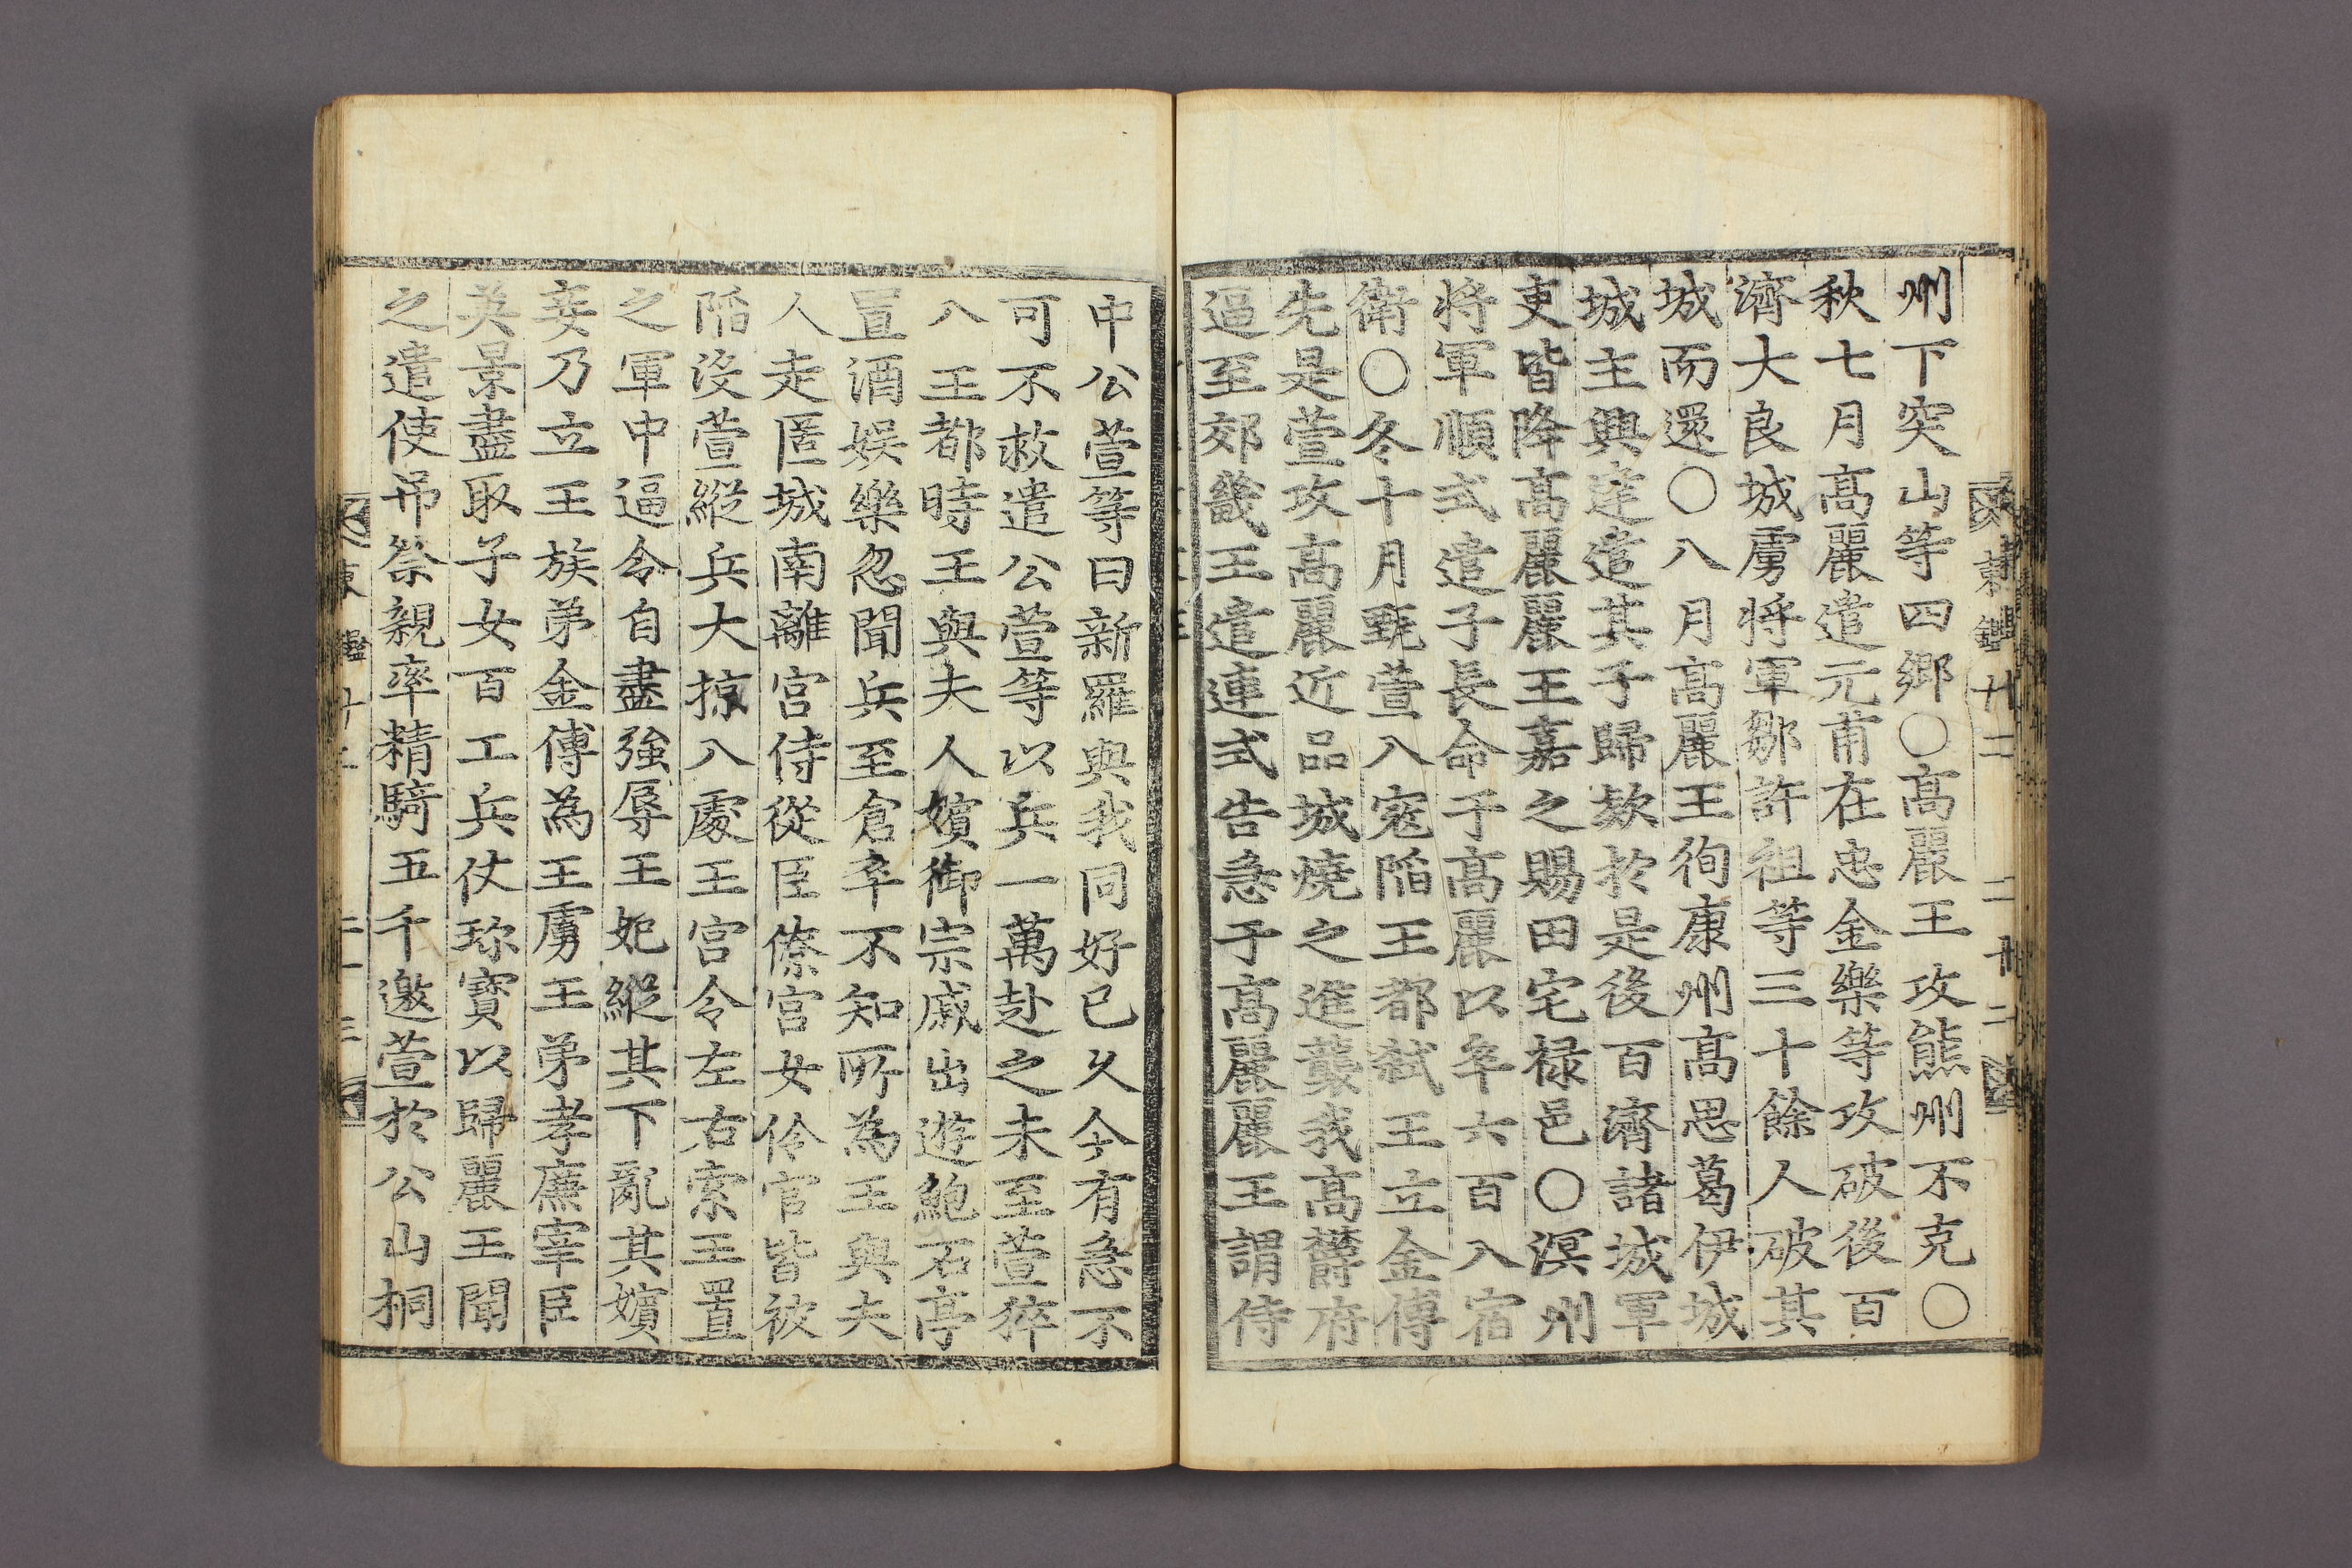 州下突山等四鄕○高麗王攻熊州不克○
秋七月高麗遣元甫在忠金樂等攻破後百
濟大良城虜將軍鄒許祖等三十餘人破其
城而還○八月高麗王徇康州高思葛伊城
城主興達遣其子歸款於是後百濟諸城軍
吏皆降高麗麗王嘉之賜田宅祿邑○溟州
將軍順式遣子長命于高麗以卒六百入宿
衛○冬十月甄萱入寇陷王都弑王立金傅
先是萱攻高麗近品城燒之進襲我高鬱府
逼至郊畿王遣連式告急于高麗麗王謂侍
中公萱等曰新羅與我同好已久今有急不
可不救遣公萱等以兵一萬赴之未至萱猝
入王都時王與夫人嬪御宗戚出遊鮑石亭
置酒娛樂忽聞兵至倉卒不知所為王與夫
人走匿城南離宮侍從臣僚宮女伶官皆被
陷沒萱縱兵大掠入處王宮令左右索王置
之軍中逼令自盡強辱王妃縱其下亂其嬪
妾乃立王族弟金傅為王虜王弟孝廉宰臣
英景盡取子女百工兵仗珍寶以歸麗王聞
之遣使弔祭親率精騎五千邀萱於公山桐